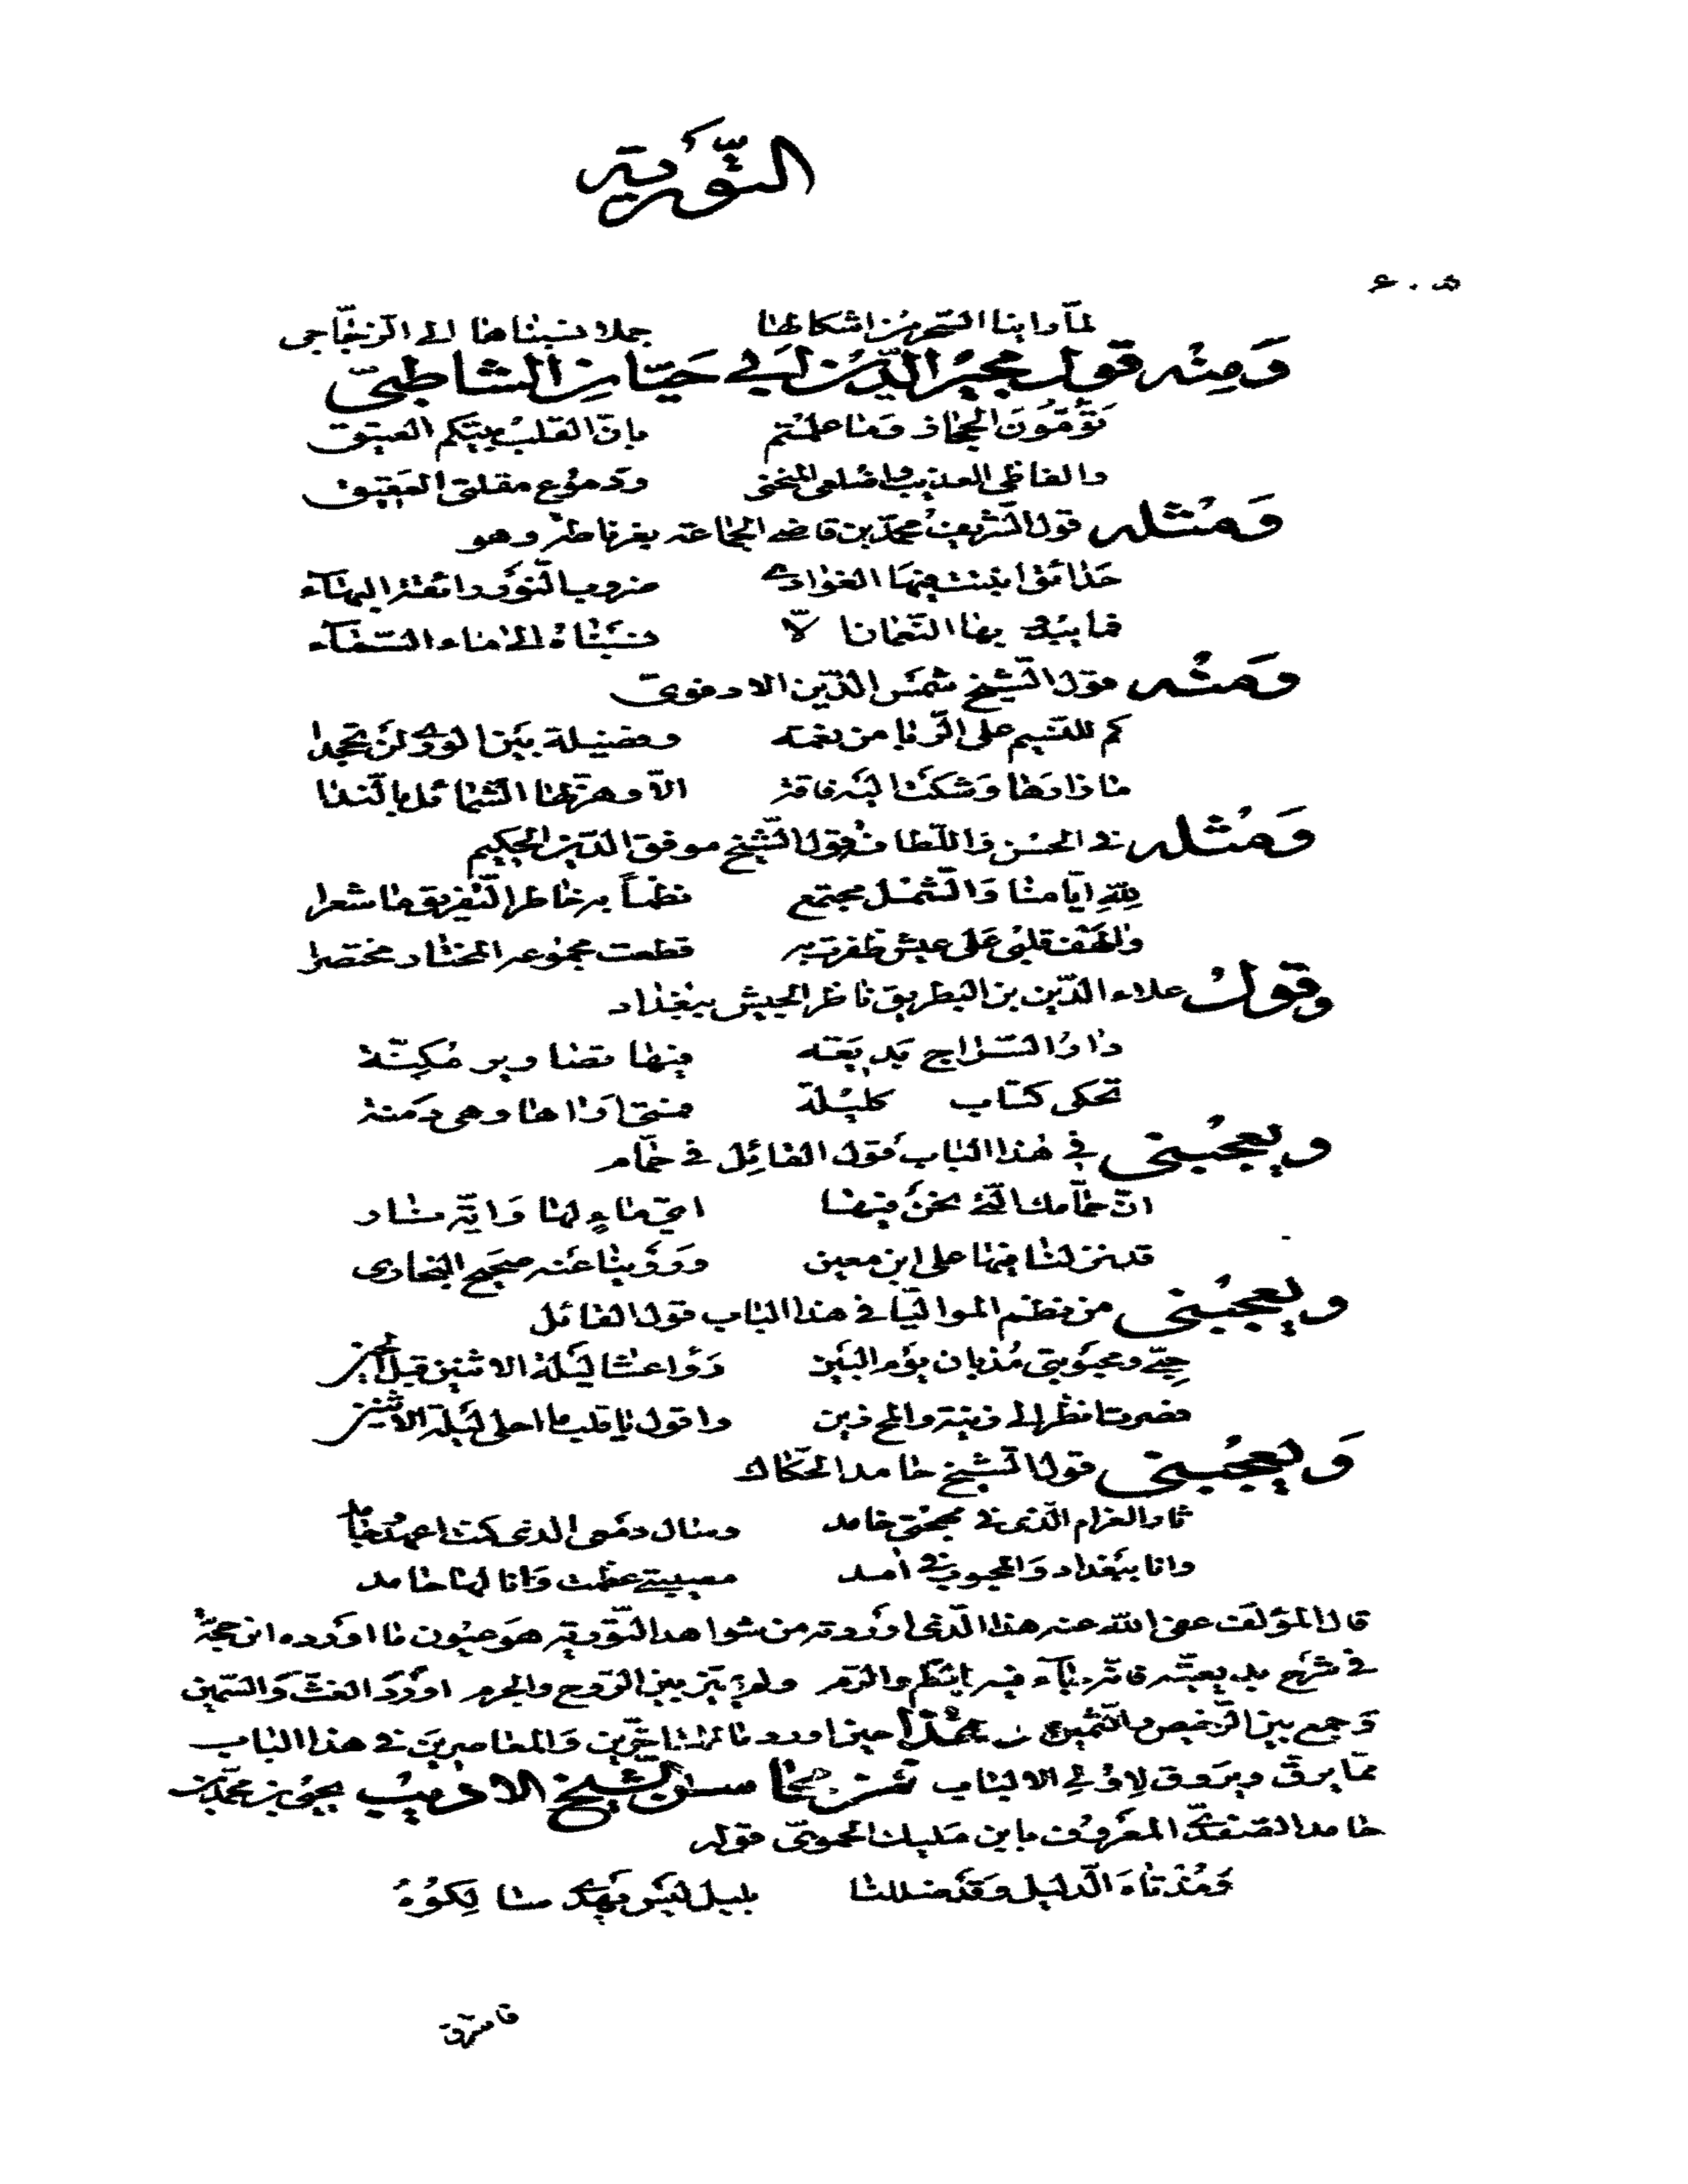 التَّوْرية
لمّا راينا السّحر من اشكالها جملا نسبناها الى الزّجّاجى
وَمِنْه قول مجير الدّين ابى حَيّان الشاطبىّ
تَؤُمّوُنَ الحجاز وَمَا علمْتم بانّ القلبَ بيتكم العتيق
والفاظى العذيب واضلعى المنحنى ودموُع مقلتى العَقيق
وَمثله قول الشّريف محمّد بن قاضى الجماعة بغرناطة وهو
حَدائق انبتت فيهَا الغوادى ضروب النّوْر رائقة البهآء
فما يبْدو بها النّعمان الّا نسَبْناهُ الى ماء السّمآء
وَمثْه قول الشّيخ شمْس الدّين الادفوى
كم للنّسيم على الرّبا من نعمة وفضيلة بَيْن الورى لَنْ تجحدا
ما زارَها وَشكَتْ اليْه فاقة الّا وهزّ لها الشّمائل بالنّدا
وَمثله فى الحسْن وَاللّطافة قول الشّيخ موفق الدّين الحكيم
لِلّهِ ايّامنا وَالشّمْل مجتمع نظماً به خاطر التّفريق ما شعرا
والهفَ قلبى عَلى عيش ظفرت به قطعت مجموعه المختار مختصرا
وقولُ علاء الدّين بن البطريق ناظر الجيش ببَغداد
دارُ السّراج بَديعَة فيها تصاوير مُكِنّة
تحكى كتاب كليْلة فمتى ارَاها وهى دمنة
ويعجبُنى فى هذا البابِ قول القائِل فى حمّام
انّ حمّامك الّتى نحن فيها اىّ ماءٍ لها وَايّة نار
قد نزلنا فيها على ابن معين وَروَينا عَنه صحيح البخارى
ويعجبُنى من نظم المواليّا فى هذا الباب قول القائل
حِبّى ومحبَوبتى مُذ بان يوْم البَين ... ليْلة الاثنين قبل ...
فصرت انظر الى زينة والمح زين واقول يا قلب ما احلى ليْلة الاثنين
وَيعجبُنى قول الشّيخ حامد الحكّاك
ثار الغرام الّذى فى مهجتى خامد وسال دمْعى الذى كنت اعهدُ جامد
وانا ببَغداد وَالمحبوب فى امد مصيبتى عظمت وَانا لها حامد
قال المؤلف عفى اللّه عنه هذا الّذى اوْردته من شواهد التّوْرية هَو عيُون ما اوْرده ابن حجّة
فى شرْح بديعيّته فانّه جآء فيه بالطّم والرّم ولم يميّز بين الرّوح والجرم اوْرَدَ الغثّ وَالسّمين
وَجمع بين الرّخيص والثّمين وهٰذا حين اورد ما للمتاخّرين وَالمعاصرين فى هذا الباب
ممّا يرقّ ويرَوق لِاوْلى الالباب فمن محاسن الشّيخ الاديبُ يحيى بن محمّد بن
حامد الصّفدىّ المعرَوُف بابن مَليك الحموىّ قوله
وَمُذ تاهَ الدّليل وَقَدْ ضللنا بليل ليْس يَهدى سالِكوُهُ